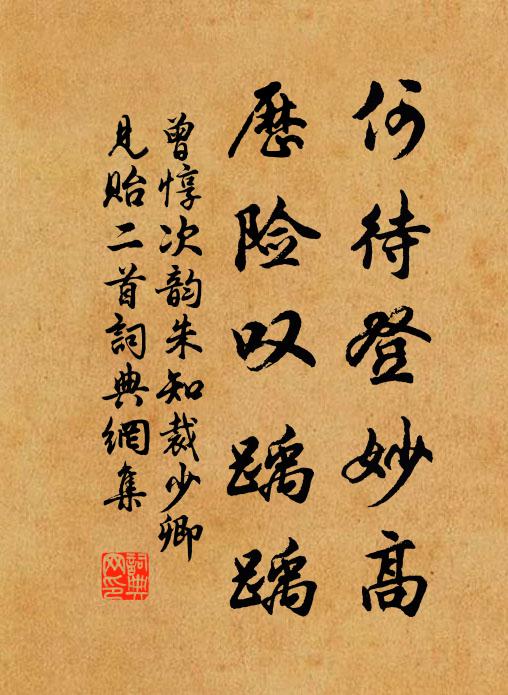 何待登妙高
历险叹踽踽
曾惇次韵朱知裁少卿
见贻二首词典網集
詞典網印